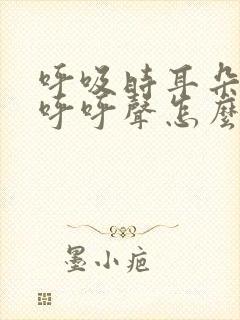 呼吸時耳朵
呼呼聲怎麼
墨小疤